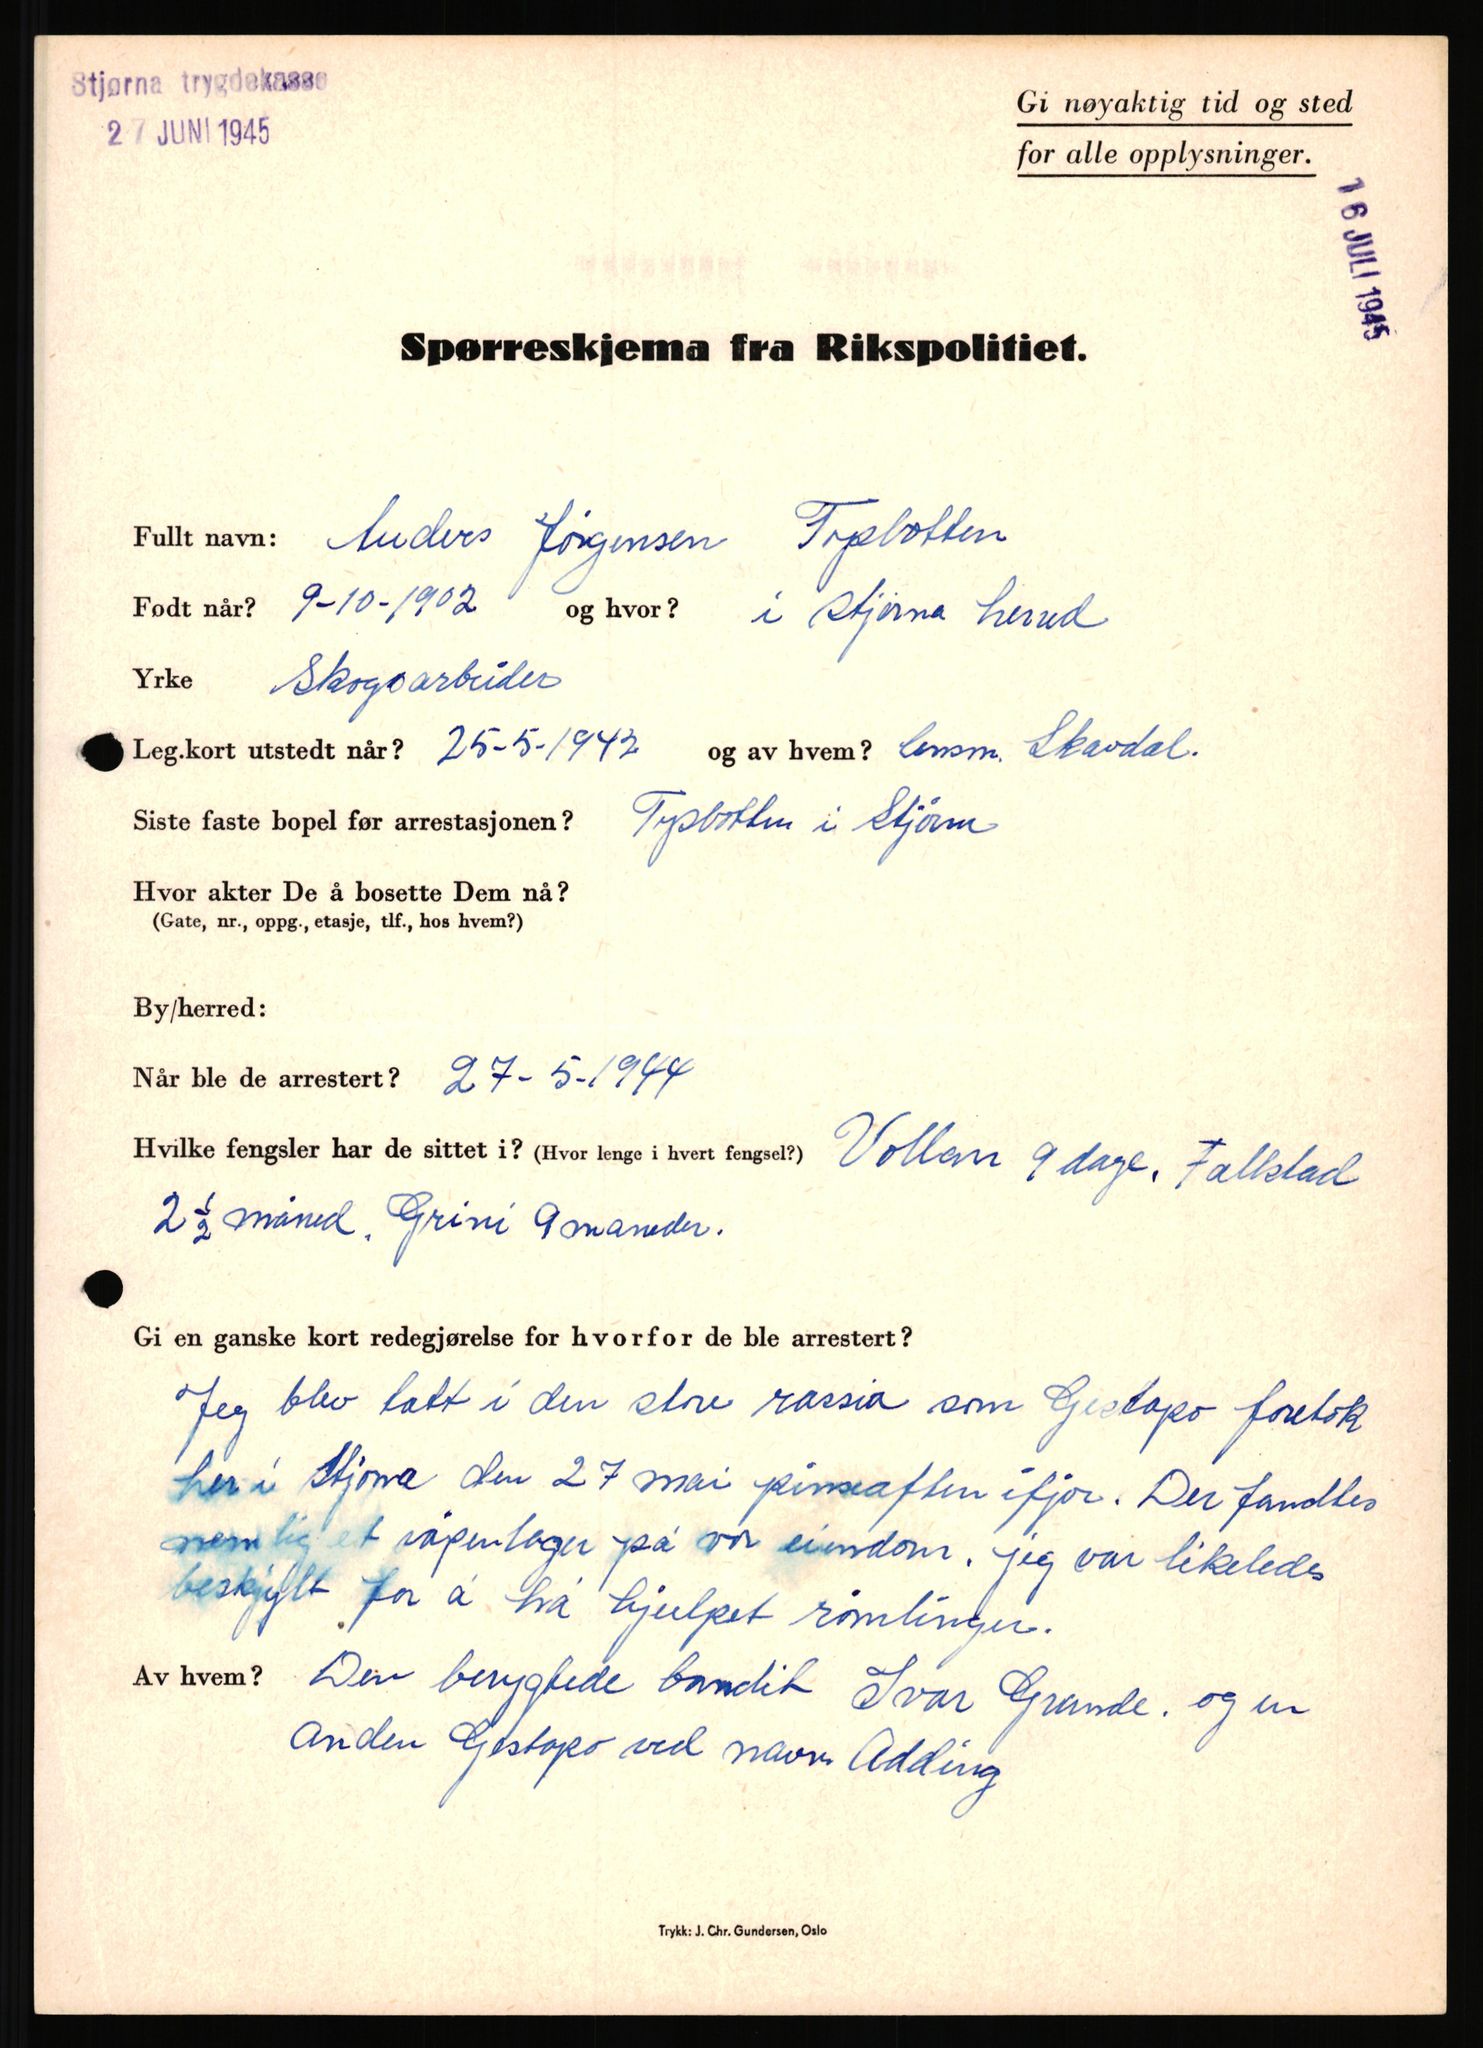 Stjørna trygdekasse
27 JUNI 1945
Gi nøyaktig tid og sted
for alle opplysninger.
16 JULI 1945
Spørreskjema fra Rikspolitiet.
Fullt navn: Anders Jörgensen Trpbotten
Født når? 9-10-1902 og hvor? i Stjörna herred
Yrke Skogsarbeider
Leg.kort utstedt når? 25-5-1942 og av hvem? lensm. Skavdal.
Siste faste bopel før arrestasjonen? Trpbotten i Stjörna
Hvor akter De å bosette Dem nå?
(Gate, nr., oppg., etasje, tlf., hos hvem?)
By/herred:
Når ble de arrestert? 27-5-1944
Hvilke fengsler har de sittet i? (Hvor lenge i hvert fengsel?) Vollan 9 dage. Falkstad
2 1/2 måned. Grini 9 maneder.
Gi en ganske kort redegjørelse for hvorfor de ble arrestert?
Jeg blev tatt i den store rassia som Gestapo foretok
her i Stjorna den 27 mai pinseaften ifjor. Der fandtes
nemlig et våpenlager på vor eiendom. jeg var likeledes
beskjylt for å há hjulpet römlinger.
Av hvem? Den berygtede bandit Ivar Grande. og en
anden Gestapo ved navn Adding
Trykk: J. Chr. Gundersen, Oslo